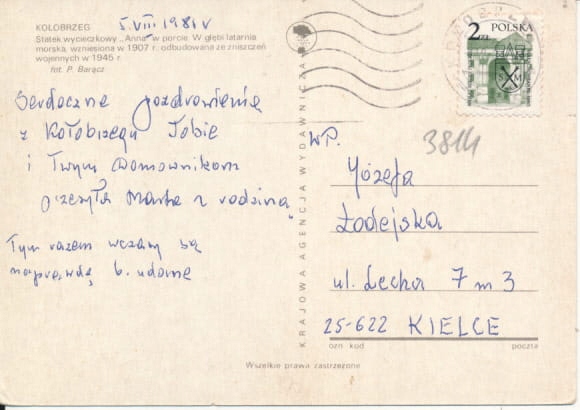 KOŁOBRZEG
5.VIII 1981 r
Statek wycieczkowy „Anna” w porcie. W głębi latarnia
morska, wzniesiona w 1907 r. odbudowana ze zniszczeń
wojennych w 1945 r.
fot. P. Barącz
Serdeczne pozdrowienia
z Kołobrzegu Tobie
i Twym Domownikom
przesyła Marta z rodziną
Tym razem wczasy są
naprawdę b. udane
KRAJOWA AGENCJA WYDAWNICZA
2 zł POLSKA
3814
WP.
Józefa
Łodejska
ul. Lecha 7 m 3
25-622 KIELCE
ozn kod poczta
Wszelkie prawa zastrzeżone